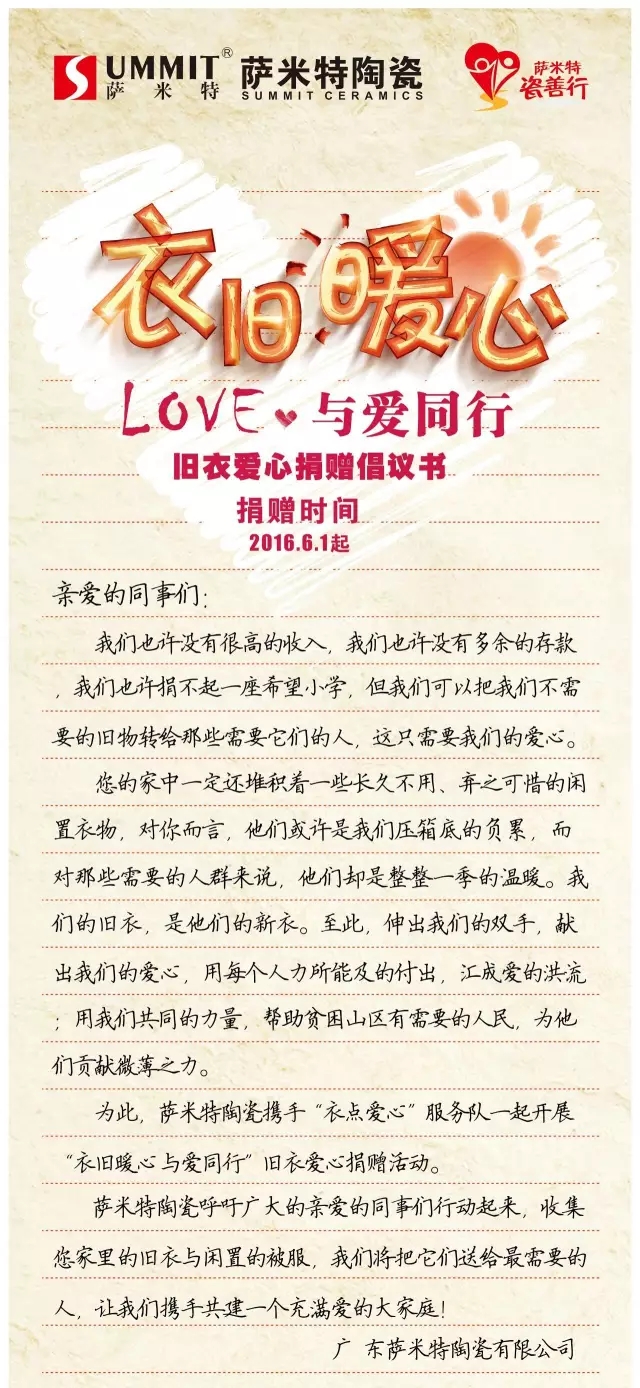 SUMMIT® 萨米特陶瓷
萨米特 SUMMIT CERAMICS
萨米特
瓷善行
衣旧暖心
LOVE 与爱同行
旧衣爱心捐赠倡议书
捐赠时间
2016.6.1起
亲爱的同事们：
我们也许没有很高的收入，我们也许没有多余的存款
，我们也许捐不起一座希望小学，但我们可以把我们不需
要的旧物转给那些需要它们的人，这只需要我们的爱心。
您的家中一定还堆积着一些长久不用、弃之可惜的闲
置衣物，对你而言，他们或许是我们压箱底的负累，而
对那些需要的人群来说，他们却是整整一季的温暖。我
们的旧衣，是他们的新衣。至此，伸出我们的双手，献
出我们的爱心，用每个人力所能及的付出，汇成爱的洪流
；用我们共同的力量，帮助贫困山区有需要的人民，为他
们贡献微薄之力。
为此，萨米特陶瓷携手“衣点爱心”服务队一起开展
“衣旧暖心 与爱同行”旧衣爱心捐赠活动。
萨米特陶瓷呼吁广大的亲爱的同事们行动起来，收集
您家里的旧衣与闲置的被服，我们将把它们送给最需要的
人，让我们携手共建一个充满爱的大家庭！
广 东萨米特陶瓷有限公司